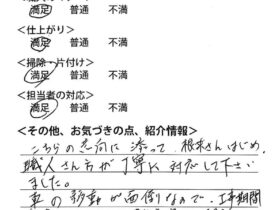 満足　普通　不満
<仕上がり>
満足　普通　不満
<掃除・片付け>
満足　普通　不満
<担当者の対応>
満足　普通　不満
<その他、お気づきの点、紹介情報>
こちらの意向に添って、根本さんはじめ、
職人さん方が丁寧に対応して下さい
ました。
車の移動が面倒なので、工事期間